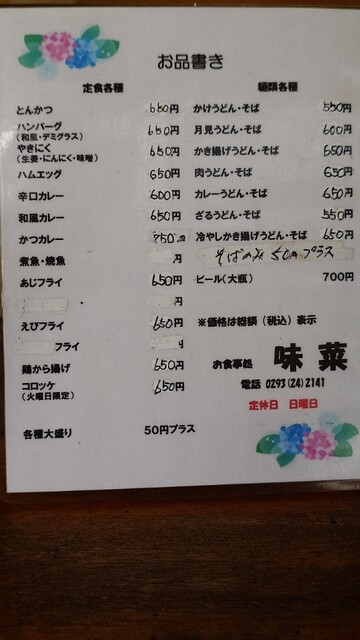 お品書き
定食各種
とんかつ 650円
ハンバーグ 650円
(和風・デミグラス)
やきにく 650円
(生姜・にんにく・味噌)
ハムエッグ 650円
辛口カレー 600円
和風カレー 650円
かつカレー 750円
煮魚・焼魚 円
あじフライ 650円
円
えびフライ 650円
フライ 円
鶏から揚げ 650円
コロッケ 650円
(火曜日限定)
各種大盛り 50円プラス
麺類各種
かけうどん・そば 550円
月見うどん・そば 600円
かき揚げうどん・そば 650円
肉うどん・そば 650円
カレーうどん・そば 650円
ざるうどん・そば 550円
冷やしかき揚げうどん・そば 650円
そばのみ 50円プラス
ビール(大瓶) 700円
※価格は総額(税込)表示
お食事処 味菜
電話 0293(24)2141
定休日 日曜日